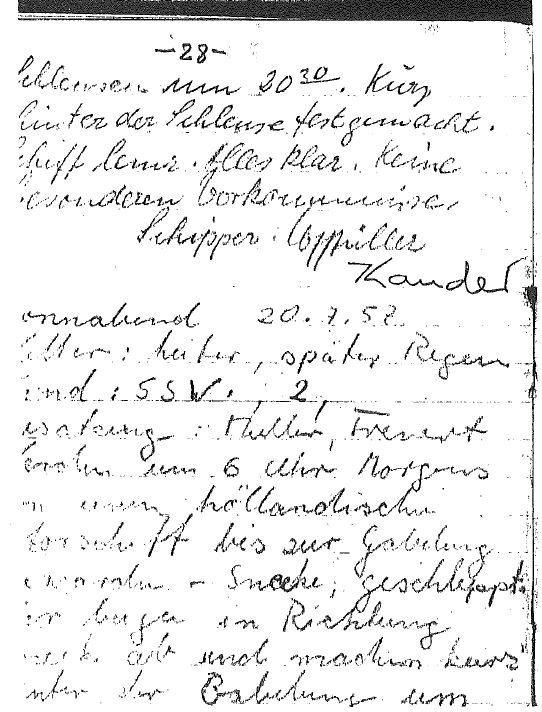 -28-
Schleusen um 20³⁰. Kurz
hinter der Schleuse festgemacht.
Schiff lenz. Alles klar. Keine
besonderen Vorkommnisse,
Schipper: Müller
Kander
onnabend 20.7.57
etter: heiter, später Regen
ind: SSW., 2,
esatzung: Müller, Frevert
um 6 Uhr Morgens
n holländischen
torschiff bis zur Gabelung
- Sneek, geschleppt.
ir bugen in Richtung
neek ab und machen kurz
nter der Gabelung um